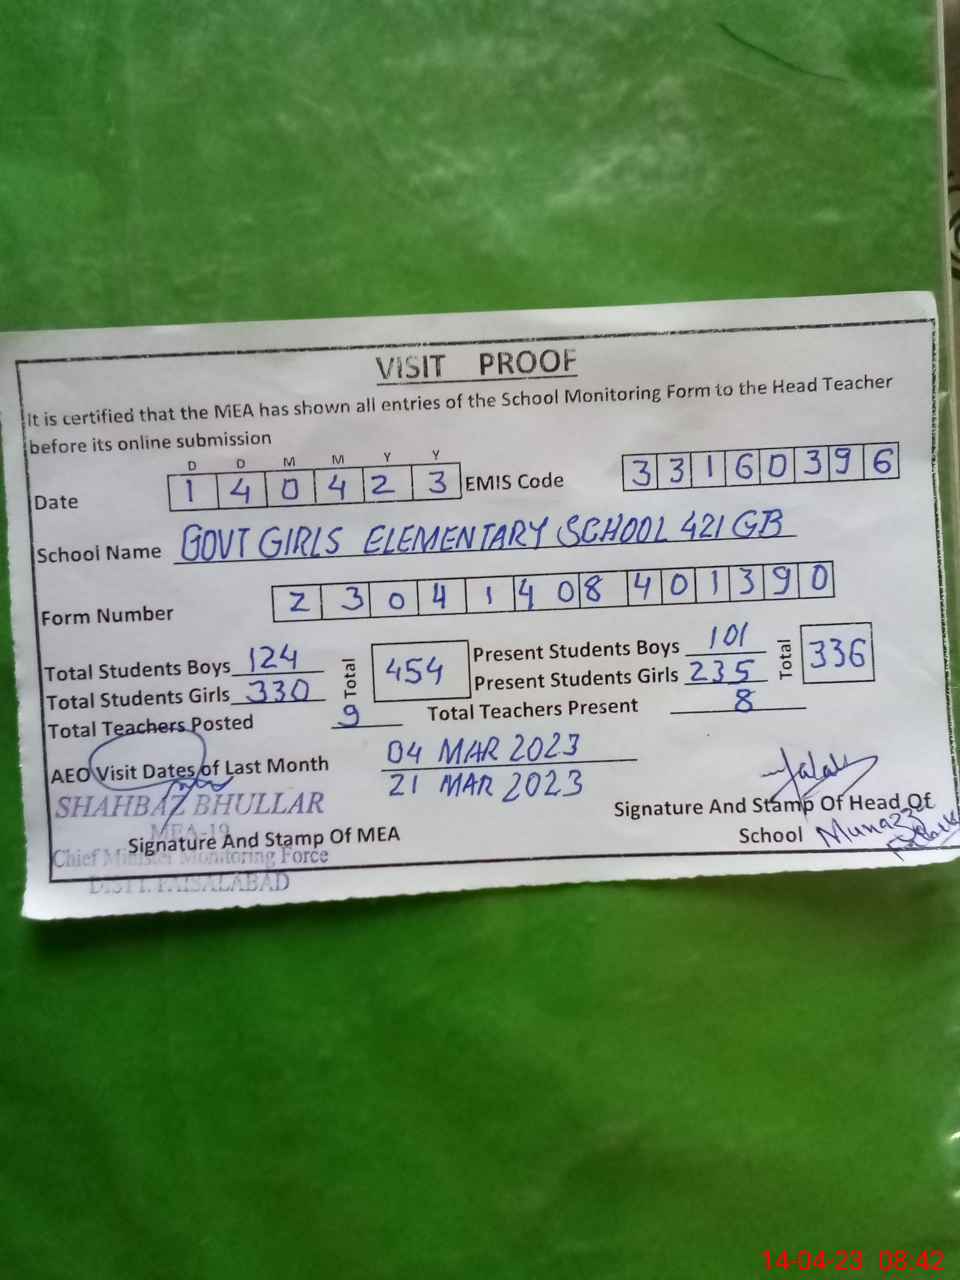 VISIT PROOF
It is certified that the MEA has shown all entries of the School Monitoring Form to the Head Teacher
before its online submission
D D M M Y Y
Date 1 4 0 4 2 3 EMIS Code 3 3 1 6 0 3 9 6
School Name GOVT GIRLS ELEMENTARY SCHOOL 421 GB
Form Number 2 3 0 4 1 4 0 8 4 0 1 3 9 0
Total Students Boys 124 Total 454 Present Students Boys 101 Total 336
Total Students Girls 330 Present Students Girls 235
Total Teachers Posted 9 Total Teachers Present 8
AEO Visit Dates of Last Month 04 MAR 2023
21 MAR 2023
SHAHBAZ BHULLAR
MEA-19
Signature And Stamp Of MEA
Chief Minister Monitoring Force
DISTT. FAISALABAD
Signature And Stamp Of Head Of
School Munazza
14-04-23 08:42